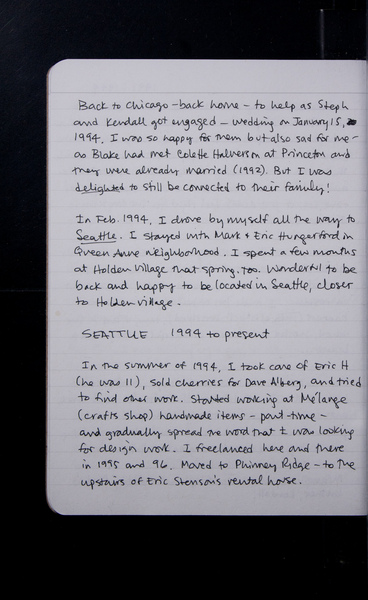 Back to Chicago - back home - to help as Steph
and Kendall got engaged - wedding on January 15,
1994. I was so happy for them but also sad for me -
as Blake had met Colette Halverson at Princeton and
they were already married (1992). But I was
delighted to still be connected to their family!
In Feb. 1994, I drove by myself all the way to
Seattle. I stayed with Mark & Eric Hungerford in
Queen Anne neighborhood. I spent a few months
at Holden Village that spring, too. Wonderful to be
back and happy to be located in Seattle, closer
to Holden Village.
SEATTLE 1994 to present
In the summer of 1994, I took care of Eric H
(he was 11), sold cherries for Dave Alberg, and tried
to find other work. Started working at Mélange
(crafts shop) handmade items - part-time -
and gradually spread the word that I was looking
for design work. I freelanced here and there
in 1995 and 96. Moved to Phinney Ridge - to the
upstairs of Eric Stenson's rental house.